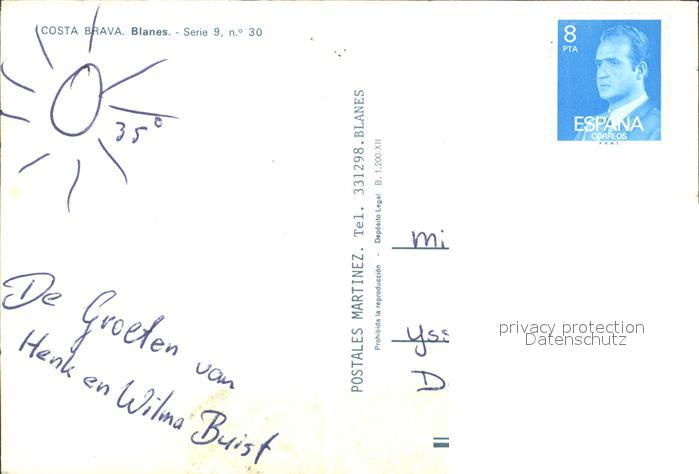 COSTA BRAVA. Blanes. - Serie 9, n.º 30
35°
De Groeten van
Henk en Wilma Buist
POSTALES MARTINEZ. Tel. 331298. BLANES
Prohibida la reproducción - Depósito Legal B. 1.200-XII
8
PTA
ESPAÑA
CORREOS
F.N.M.T.
Mi
Yss
D
privacy protection
Datenschutz